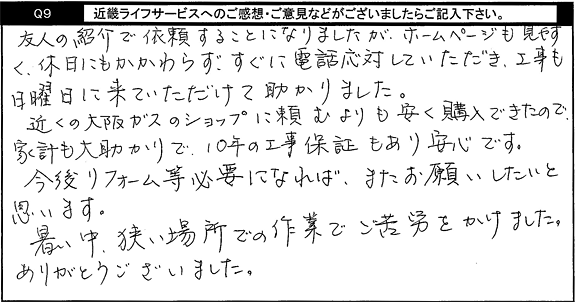 Q9 近畿ライフサービスへのご感想・ご意見などがございましたらご記入下さい。
友人の紹介で依頼することになりましたが、ホームページも見やす
く、休日にもかかわらず、すぐに電話応対していただき、工事も
日曜日に来ていただけて助かりました。
近くの大阪ガスのショップに頼むよりも安く購入できたので、
家計も大助かりで、10年の工事保証もあり安心です。
今後リフォーム等必要になれば、またお願いしたいと
思います。
暑い中、狭い場所での作業でご苦労をかけました。
ありがとうございました。